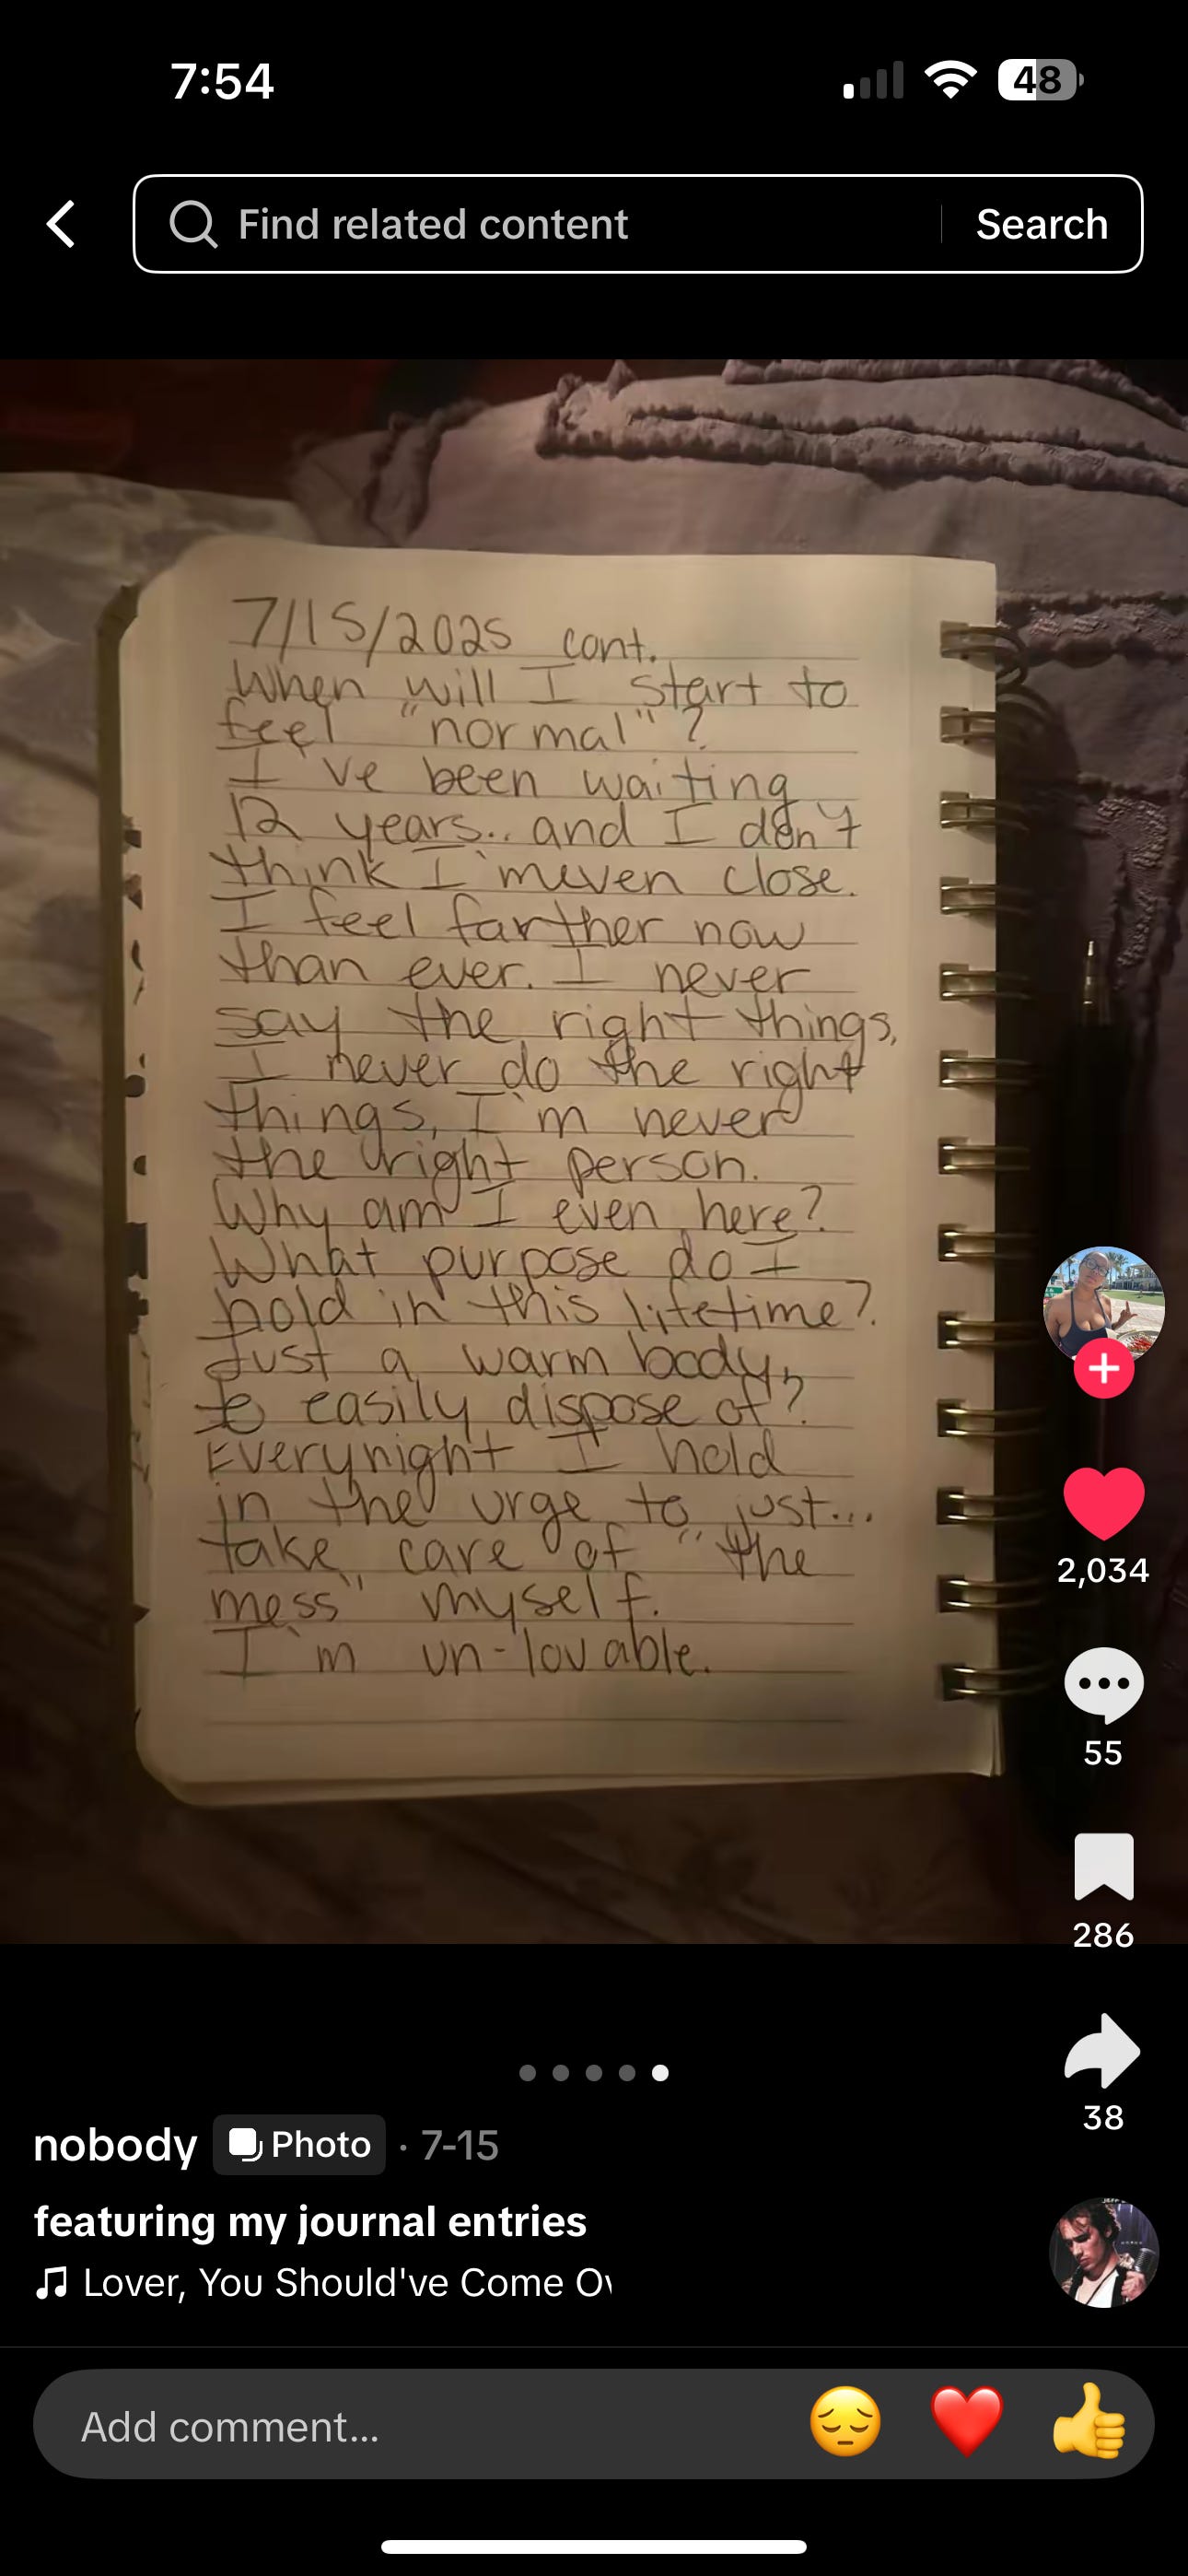 7:54
48
Find related content
Search
7/15/2025 cont.
When will I start to
feel "normal"?
I've been waiting
12 years.. and I don't
think I'm even close.
I feel farther now
than ever. I never
say the right things,
I never do the right
things, I'm never
the right person.
Why am I even here?
What purpose do I
hold in this lifetime?
Just a warm body,
to easily dispose of?
Everynight I hold
in the urge to just...
take care of "the
mess" myself.
I'm un-lovable.
2,034
55
286
38
nobody
Photo
· 7-15
featuring my journal entries
Lover, You Should've Come Ov
Add comment...